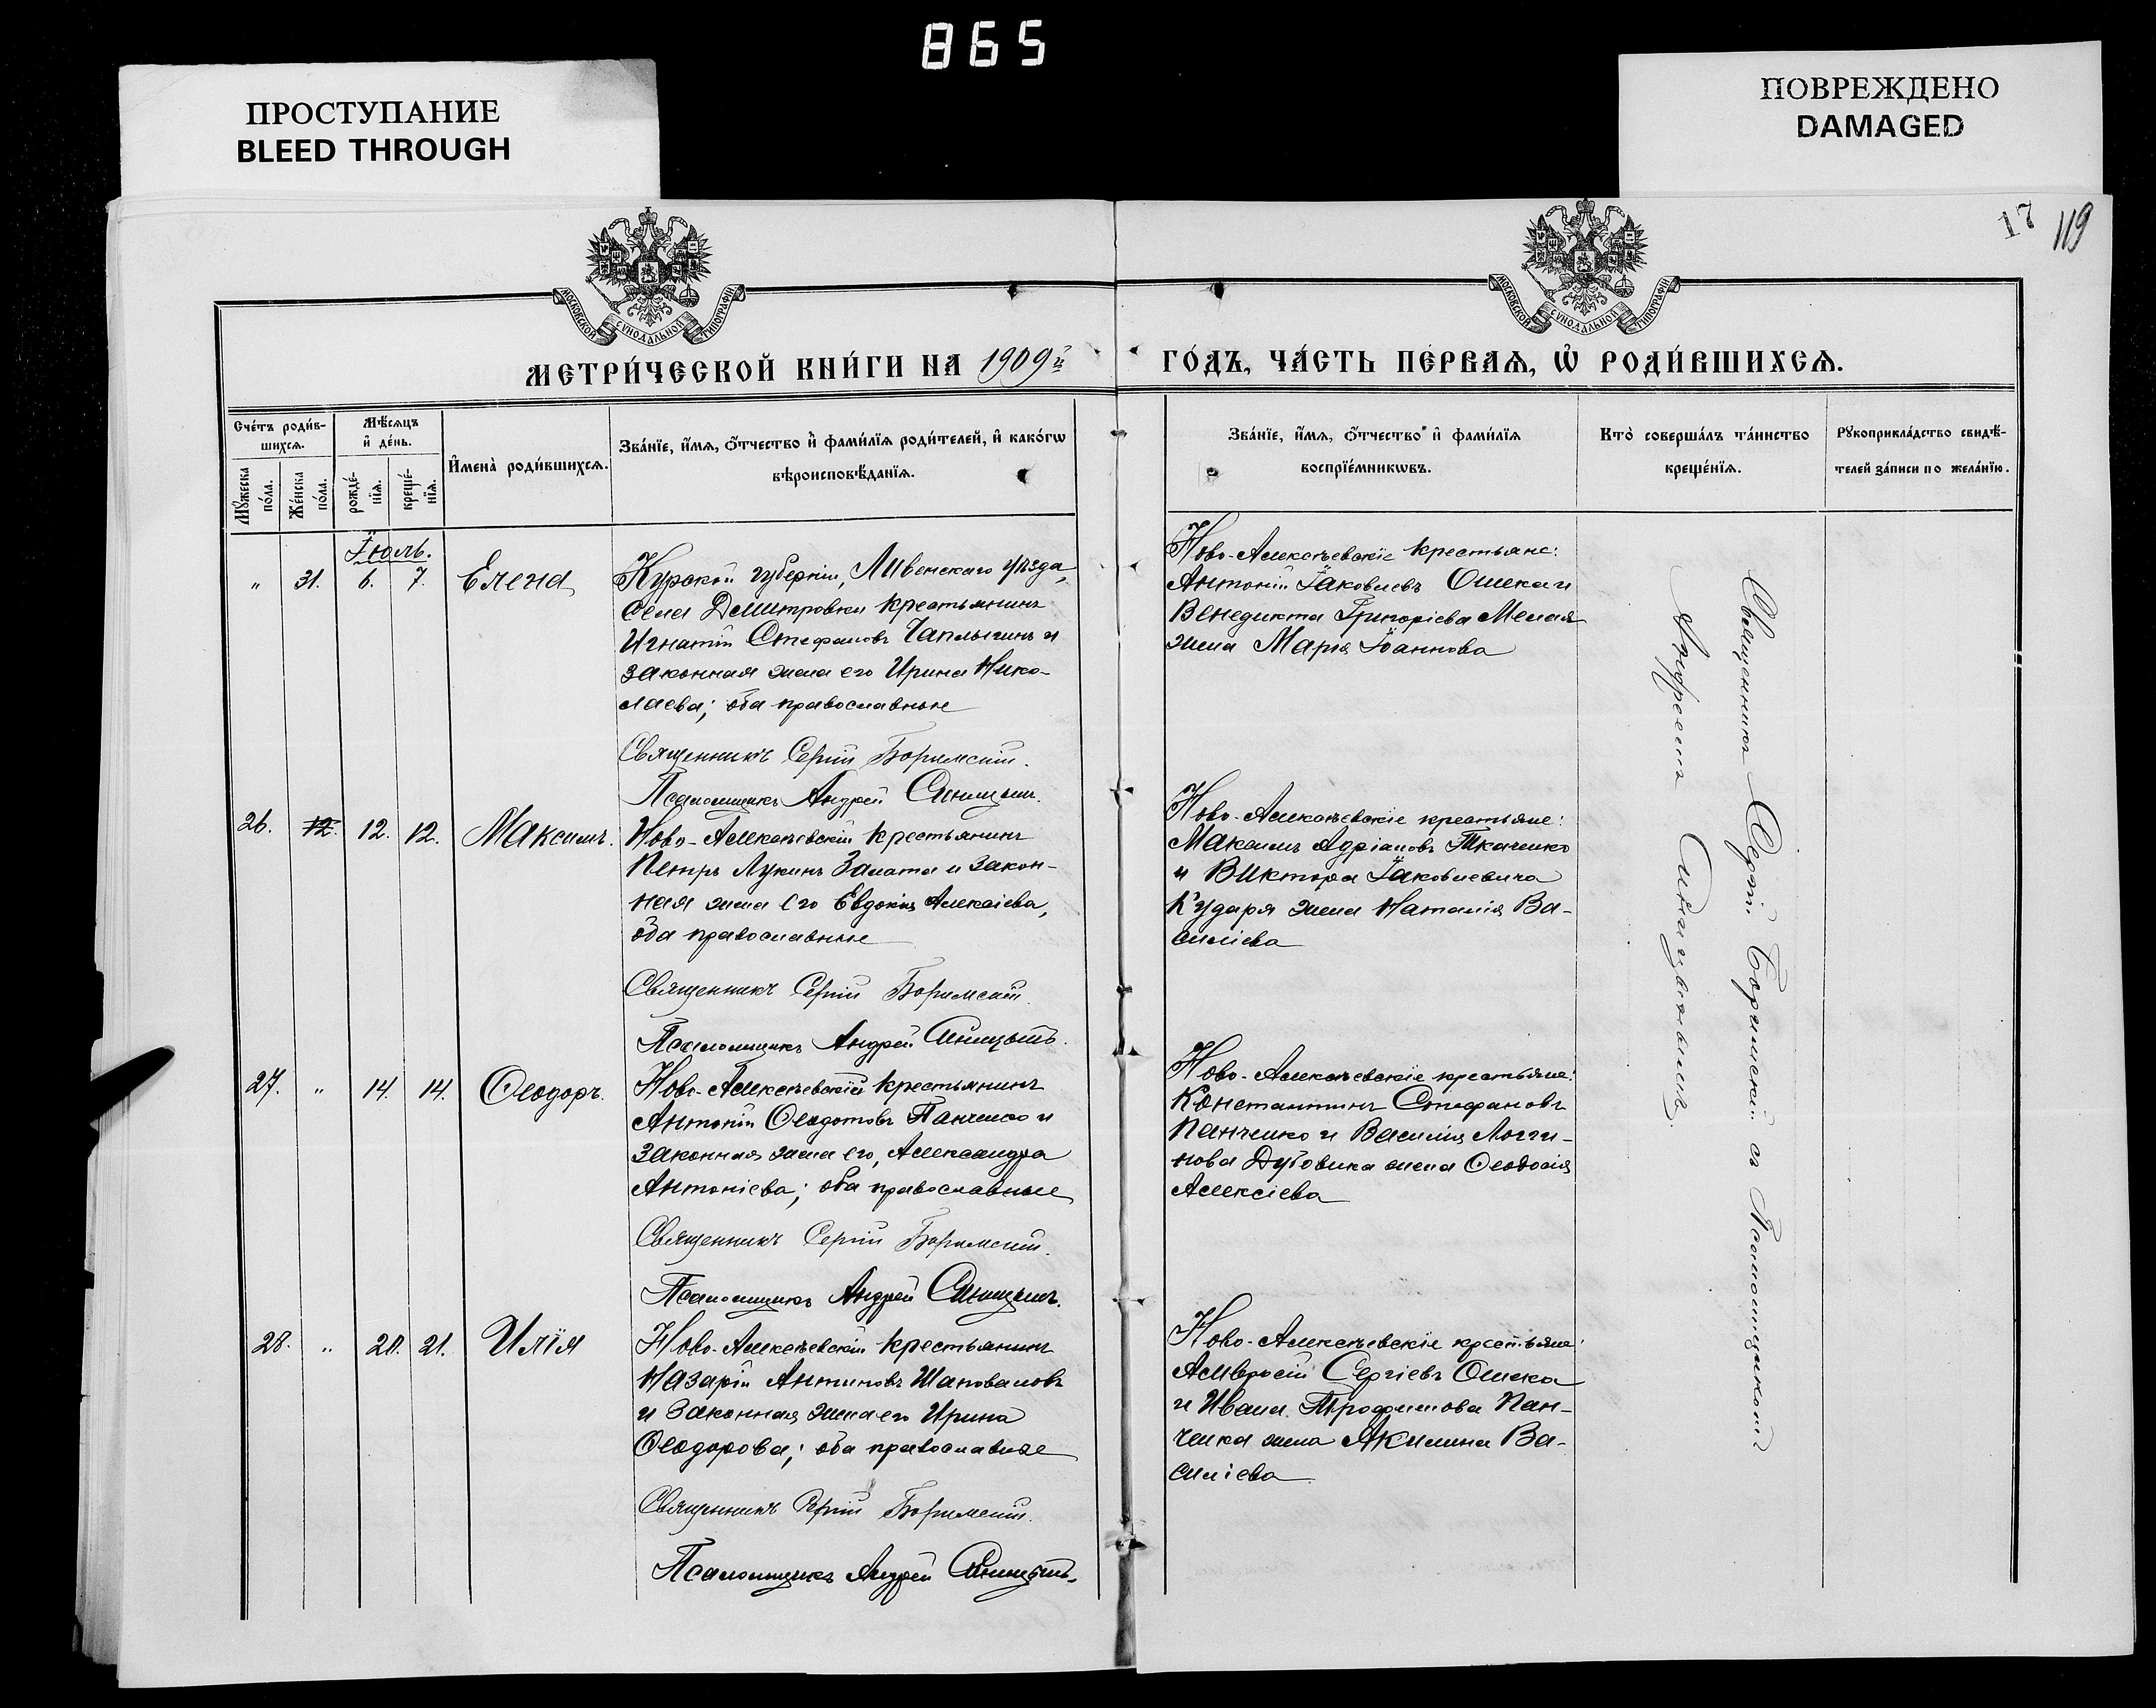 865
ПРОСТУПАНИЕ
BLEED THROUGH
ПОВРЕЖДЕНО
DAMAGED
17 119
МОСКОВСКОЙ СУНОДАЛЬНОЙ ТИПОГРАФІИ
МОСКОВСКОЙ СУНОДАЛЬНОЙ ТИПОГРАФІИ
МЕТРИ́ЧЕСКОЙ КНИ́ГИ НА 1909й
ГО́ДЪ, ЧА́СТЬ ПЕ́РВАѦ, Ѡ҆ РОДИ́ВШИХСѦ.
Сче́тъ роди́в-
шихсѧ.
Мѣ́сѧцъ
и҆ де́нь.
Мꙋ́жеска
по́ла.
Же́нска
по́ла.
рожде́-
нїѧ.
креще́-
нїѧ.
И҆мена̀ роди́вшихсѧ.
Зва́нїе, и҆́мѧ, ѻ҆́тчество и҆ фами́лїѧ роди́телей, и҆ како́гѡ
вѣроисповѣ́данїѧ.
Зва́нїе, и҆́мѧ, ѻ҆́тчество и҆ фами́лїѧ
воспрїе́мникѡвъ.
Кто̀ соверша́лъ та́инство
креще́нїѧ.
Рꙋкоприкла́дство свидѣ́-
телей за́писи по жела́нїю.
Іюль.
" 31. 6. 7. Елена
Курской губерніи, Ливенскаго уѣзда,
села Дмитровки крестьянинъ
Игнатій Стефановъ Чаплыгинъ и
законная жена его Ирина Нико-
лаева; оба православные
Священникъ Сергій Боримскій.
Псаломщикъ Андрей Синицынъ.
Ново-Алексѣевскіе крестьяне:
Антоній Іаковлевъ Ошека и
Венедикта Григоріева Мелая
жена Марія Іоаннова
26. 12. 12. 12. Максимъ.
Ново-Алексѣевскій крестьянинъ
Петръ Лукинъ Залата и закон-
ная жена его Евдокія Алексіева,
оба православные
Священникъ Сергій Боримскій.
Псаломщикъ Андрей Синицынъ.
Ново-Алексѣевскіе крестьяне:
Максимъ Адріановъ Ткаченко
и Виктора Іаковлевича
Кударя жена Наталія Ва-
силіева
27. " 14. 14. Ѳеодоръ.
Ново-Алексѣевскій крестьянинъ
Антоній Ѳеодотовъ Панченко и
законная жена его, Александра
Антоніева; оба православные
Священникъ Сергій Боримскій.
Псаломщикъ Андрей Синицынъ.
Ново-Алексѣевскіе крестьяне:
Константинъ Стефановъ
Панченко и Василія Логги-
нова Дубовика жена Ѳеодосія
Алексіева
28. " 20. 21. Илія
Ново-Алексѣевскій крестьянинъ
Назарій Антиповъ Шаповаловъ
и законная жена его Ирина
Ѳеодорова; оба православные
Священникъ Сергій Боримскій.
Псаломщикъ Андрей Синицынъ.
Ново-Алексѣевскіе крестьяне:
Амвросій Сергіевъ Ошека
и Ивана Трофимова Пан-
ченка жена Акилина Ва-
силіева
Священникъ Сергій Боримскій съ Псаломщикомъ
Андреемъ Синицынымъ.